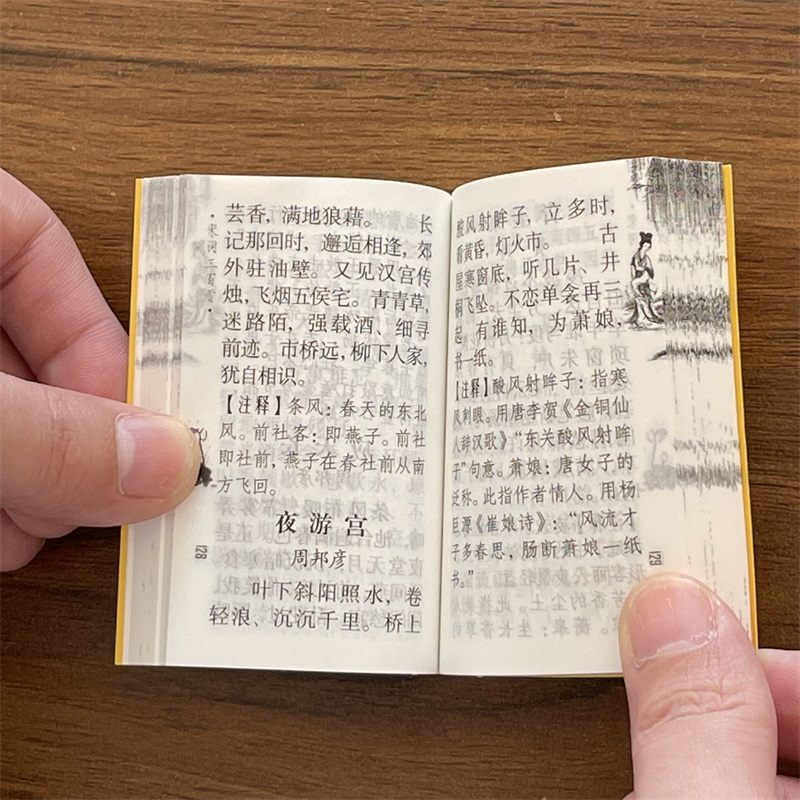 ·宋词三百首·
芸香，满地狼藉。　　长
记那回时，邂逅相逢，郊
外驻油壁。又见汉宫传
烛，飞烟五侯宅。青青草，
迷路陌，强载酒、细寻
前迹。市桥远，柳下人家，
犹自相识。
【注释】条风：春天的东北
风。前社客：即燕子。前社
即社前，燕子在春社前从南
方飞回。
夜游宫
周邦彦
叶下斜阳照水，卷
轻浪、沉沉千里。桥上
128
酸风射眸子，立多时，
看黄昏，灯火市。　　古
屋寒窗底，听几片、井
桐飞坠。不恋单衾再三
起。有谁知，为萧娘，
书一纸。
【注释】酸风射眸子：指寒
风刺眼。用唐李贺《金铜仙
人辞汉歌》“东关酸风射眸
子”句意。萧娘：唐女子的
泛称。此指作者情人。用杨
巨源《崔娘诗》：“风流才
子多春思，肠断萧娘一纸
书。”
129